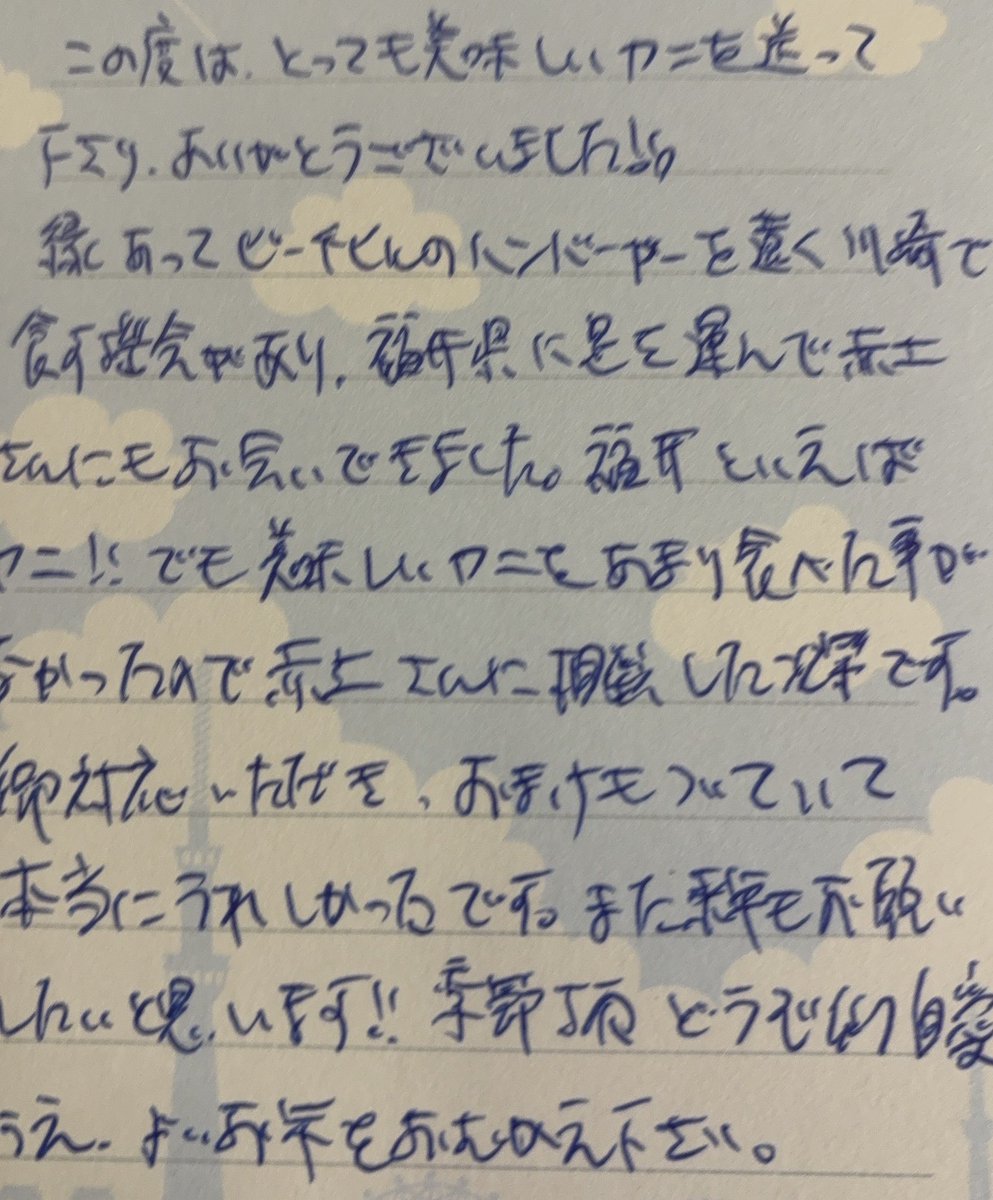 この度は、とっても美味しいカニを送って
下さり、ありがとうございました!!
縁あってビーチでのハンバーガーを遠く川崎で
食す機会があり、福井県に足を運んで赤土
さんにもお会いできました。福井といえば
カニ!!でも美味しいカニをあまり食べた事が
なかったので赤土さんに相談した次第です。
即対応いただき、おまけもついていて
本当にうれしかったです。また来年もお願い
したいと思います!!季節柄どうぞご自愛
うえ、よいお年をおむかえ下さい。